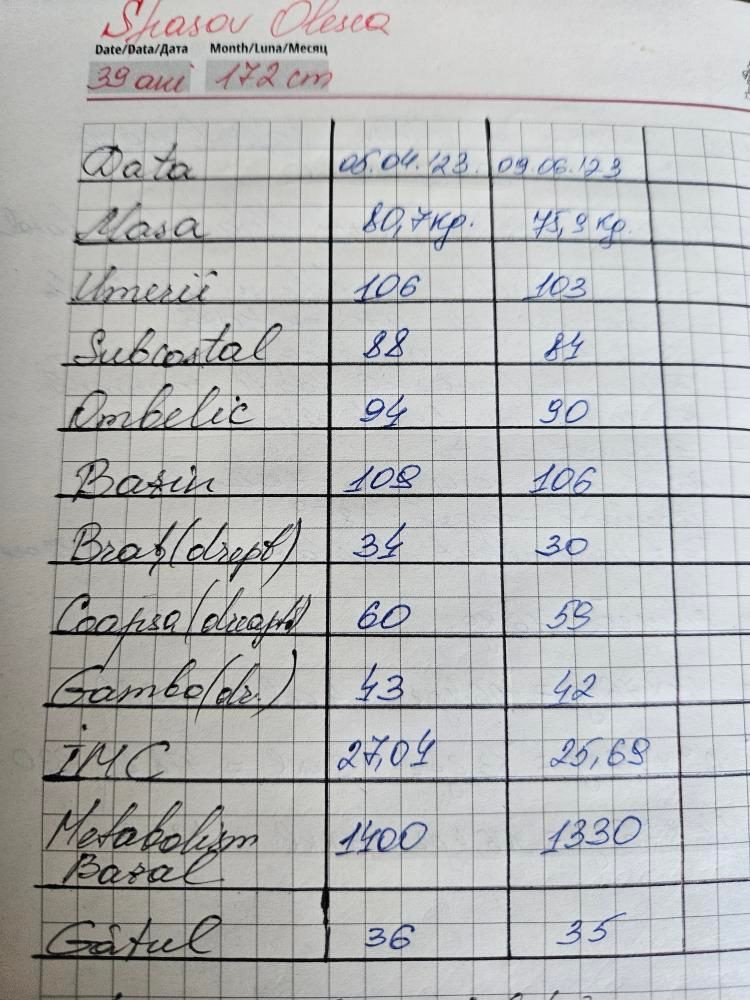 Spasov Olesea
Date/Data/Дата Month/Luna/Месяц
39 ani 172 cm
Data 05.04.'23. 09.06.'23
Masa 80,7 kg. 75,9 kg.
Umerii 106 103
Subcostal 88 84
Ombelic 94 90
Bazin 109 106
Braț (drept) 34 30
Coapsa (dreaptă) 60 59
Gamba (dr.) 43 42
IMC 27,04 25,69
Metabolism 1400 1330
Bazal
Gâtul 36 35